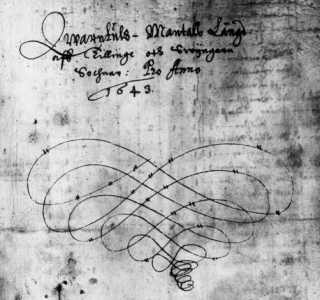 Qwarntuls-Mantals Längd
aff Tillinge och Swijngarn
Sochnar: Pro Anno
1643.